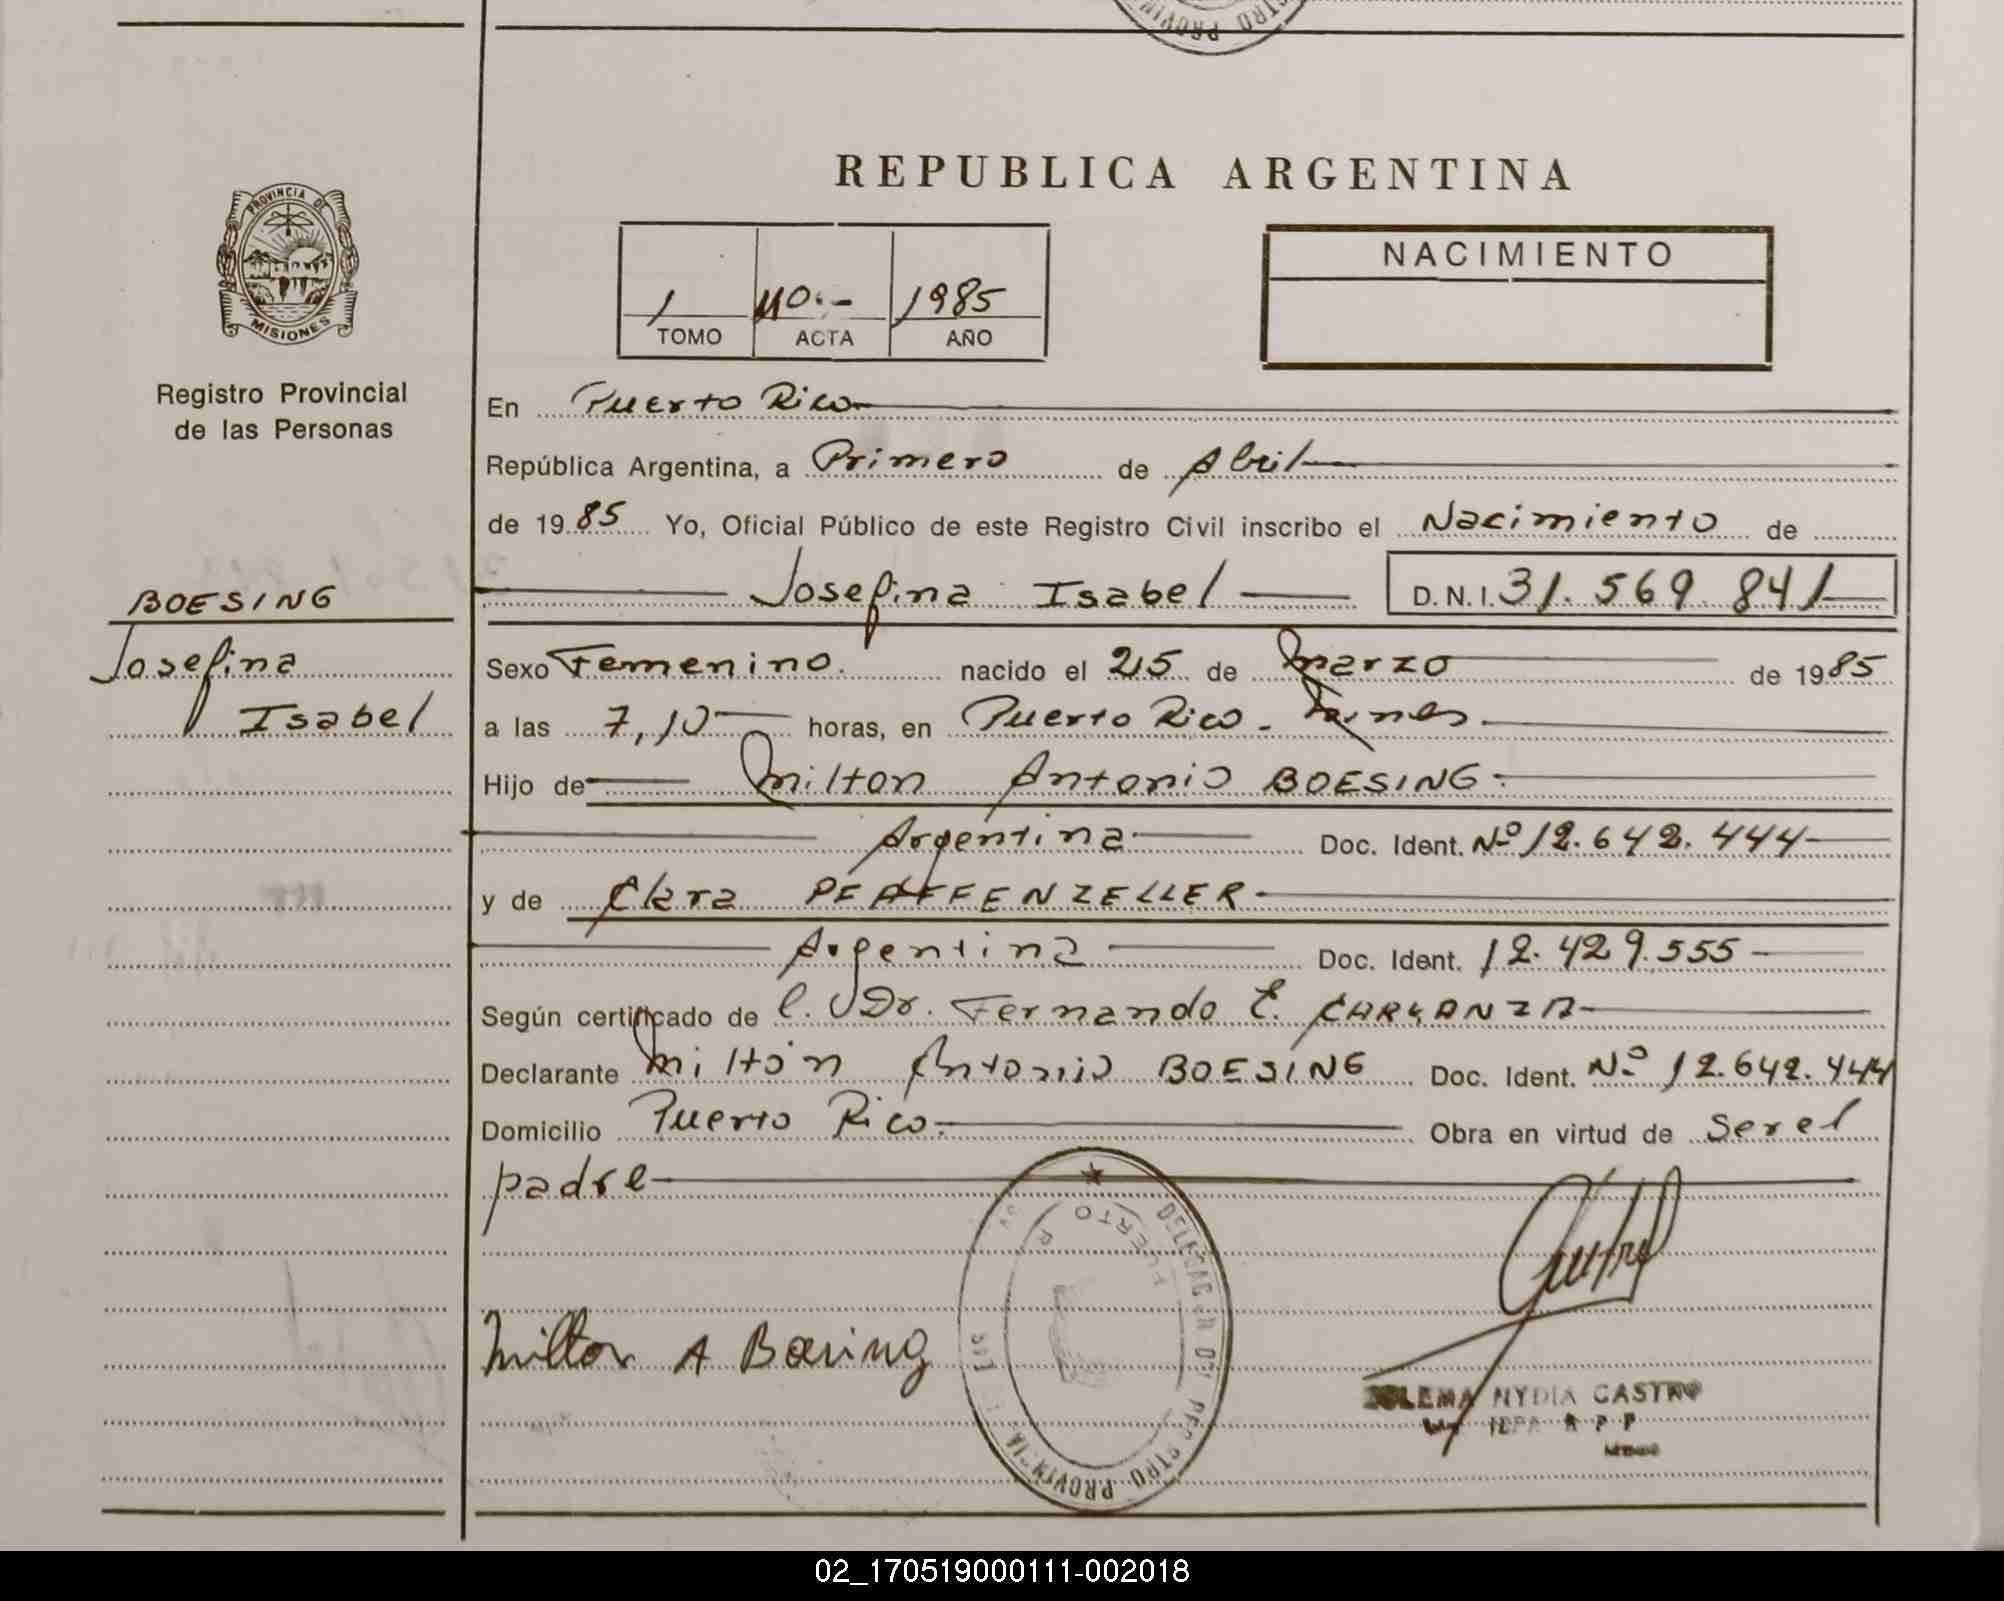 PROVIN TRO
REPUBLICA ARGENTINA
PROVINCIA DE
MISIONES
Registro Provincial
de las Personas
1 110.- 1985
TOMO ACTA AÑO
NACIMIENTO
En Puerto Rico
República Argentina, a Primero de Abril
de 1985 Yo, Oficial Público de este Registro Civil inscribo el Nacimiento de
Josefina Isabel D.N.I. 31.569.841
BOESING
Josefina
Isabel
Sexo Femenino. nacido el 25 de Marzo de 1985
a las 7,10 horas, en Puerto Rico - Mnes
Hijo de Milton Antonio BOESING.
Argentina Doc. Ident. Nº 12.642.444
y de Clara PFAFFENZELLER
Argentina Doc. Ident. 12.429.555
Según certificado de Dr. Fernando E. CARRANZA
Declarante Milton Antonio BOESING Doc. Ident. Nº 12.642.444
Domicilio Puerto Rico. Obra en virtud de ser el
padre
Milton A Boesing
NYDIA CASTRO
02_170519000111-002018